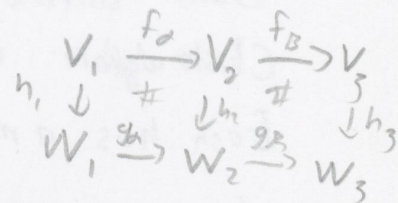 V₁ \xrightarrow{f_α} V₂ \xrightarrow{f_β} V₃
h₁ ↓ # ↓ h₂ # ↓ h₃
W₁ \xrightarrow{g_α} W₂ \xrightarrow{g_β} W₃